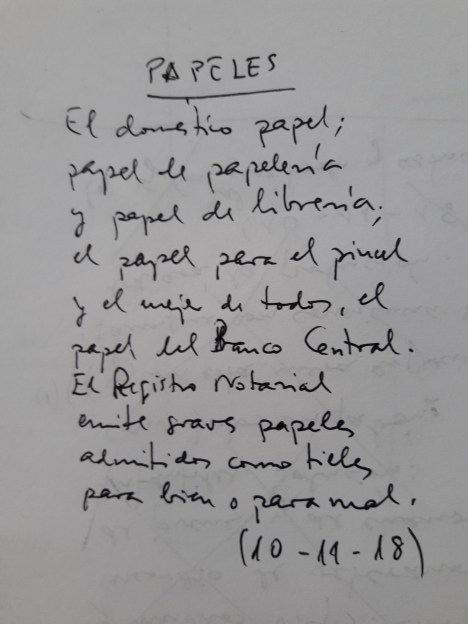 PAPELES
El doméstico papel;
papel de papelería
y papel de librería;
el papel para el pincel
y el mejor de todos, el
papel del Banco Central.
El Registro Notarial
emite graves papeles
admitidos como fieles
para bien o para mal.
(10-11-18)